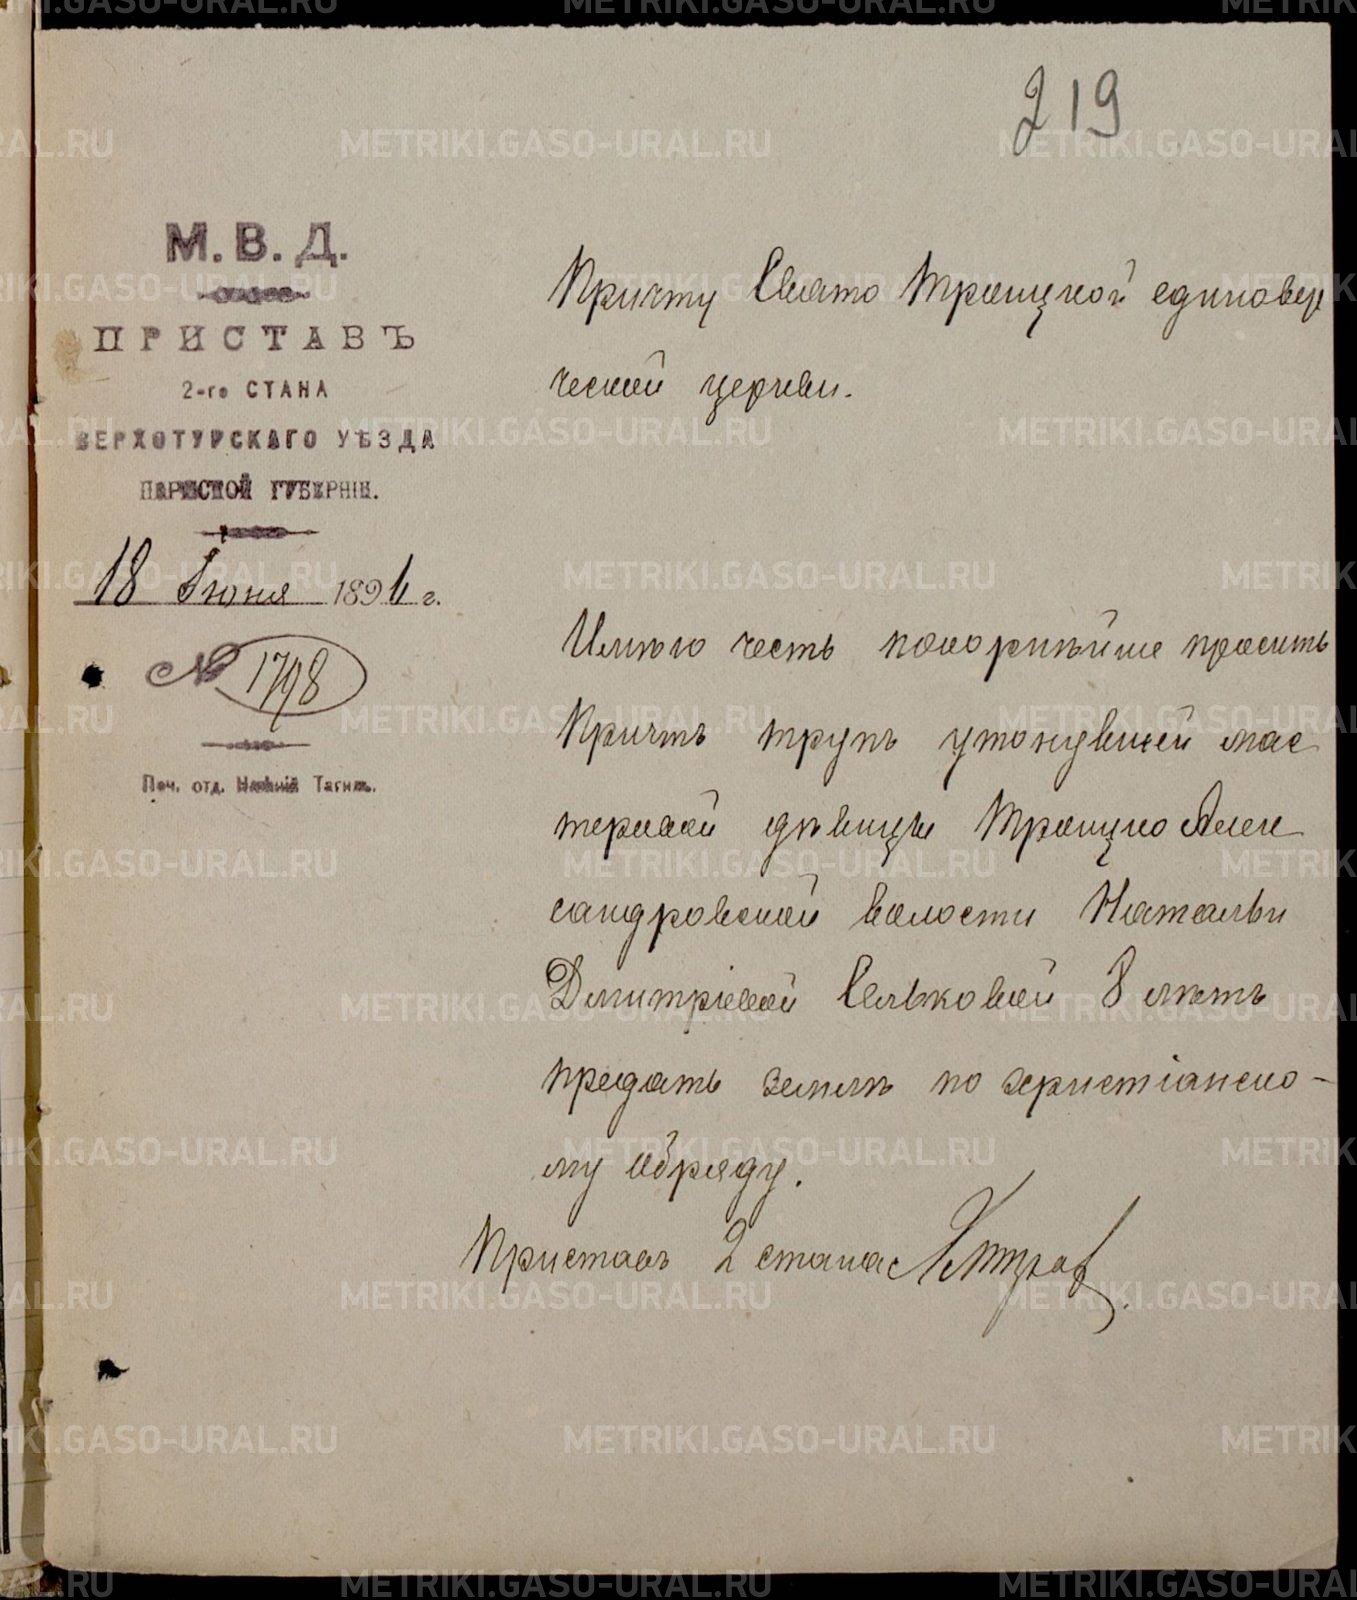 219
М. В. Д.
ПРИСТАВЪ
2-го СТАНА
ВЕРХОТУРСКАГО УѢЗДА
ПЕРМСКОЙ ГУБЕРНІИ.
18 Іюня 1891 г.
№ 1798
Печ. отд. Нижній Тагилъ.
Причту Свято Троицкой единовер
ческой церкви.
Имѣю честь покорнѣйше просить
Причтъ трупъ утонувшей мас
теровой дѣвицы Троицко Алек
сандровской волости Натальи
Дмитріевой Сельковой 8 лѣтъ
предать землѣ по христіанско-
му обряду.
Приставъ 2 стана
METRIKI.GASO-URAL.RU